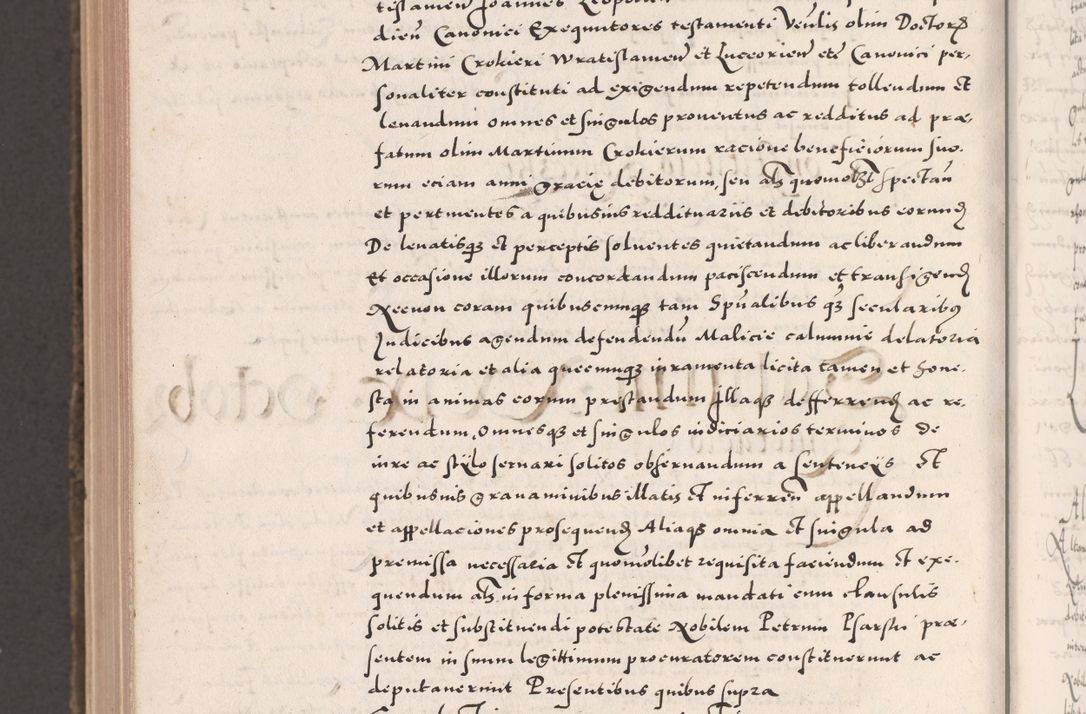 dicti Canonici Exequutores testamenti Venlis olim Doctoris
Martini Crokieri Wratislamen et Luceorien etc Canonici per-
sonaliter constituti ad exigendum repetendum tollendum Et
leuandum omnes et singulos prouentus ac redditus ad præ-
fatum olim Martinum Crokierum racione beneficiorum suo-
rum eciam anni Gracię debitorum, seu als quomolzt Spectan
et pertinentes a quibusuis reddituariis et debitoribus eorund
De leuatisqz et perceptis soluentes quietandum ac liberandum
Et occasione illorum concordandum paciscendum et transigend
Necnon coram quibuscumqz tam Spualibus qz secularibus
Judicibus agendum defendendu Malicie calumnie delatoria
relatoria et alia quecunqz iuramenta licita tamen et hone-
sta in animas eorum prestandum Illaqz defferrend ac re-
ferendum, Omnesqz et singulos iudiciarios terminos de
iure ac stylo seruari solitos obseruandum a sentencys Et
quibusuis grauaminibus illatis Et inferren appellandum
et appellaciones prosequend Aliaqz omnia Et singula ad
premissa necessaria Et quomolibet requisita faciendum Et exe-
quendum als in forma plenissima mandati cum clausulis
solitis et substituendi potestate Nobilem Petrum Psarski præ-
sentem in suum legittimum procuratorem constituerunt ac
deputauerunt Presentibus quibus supra